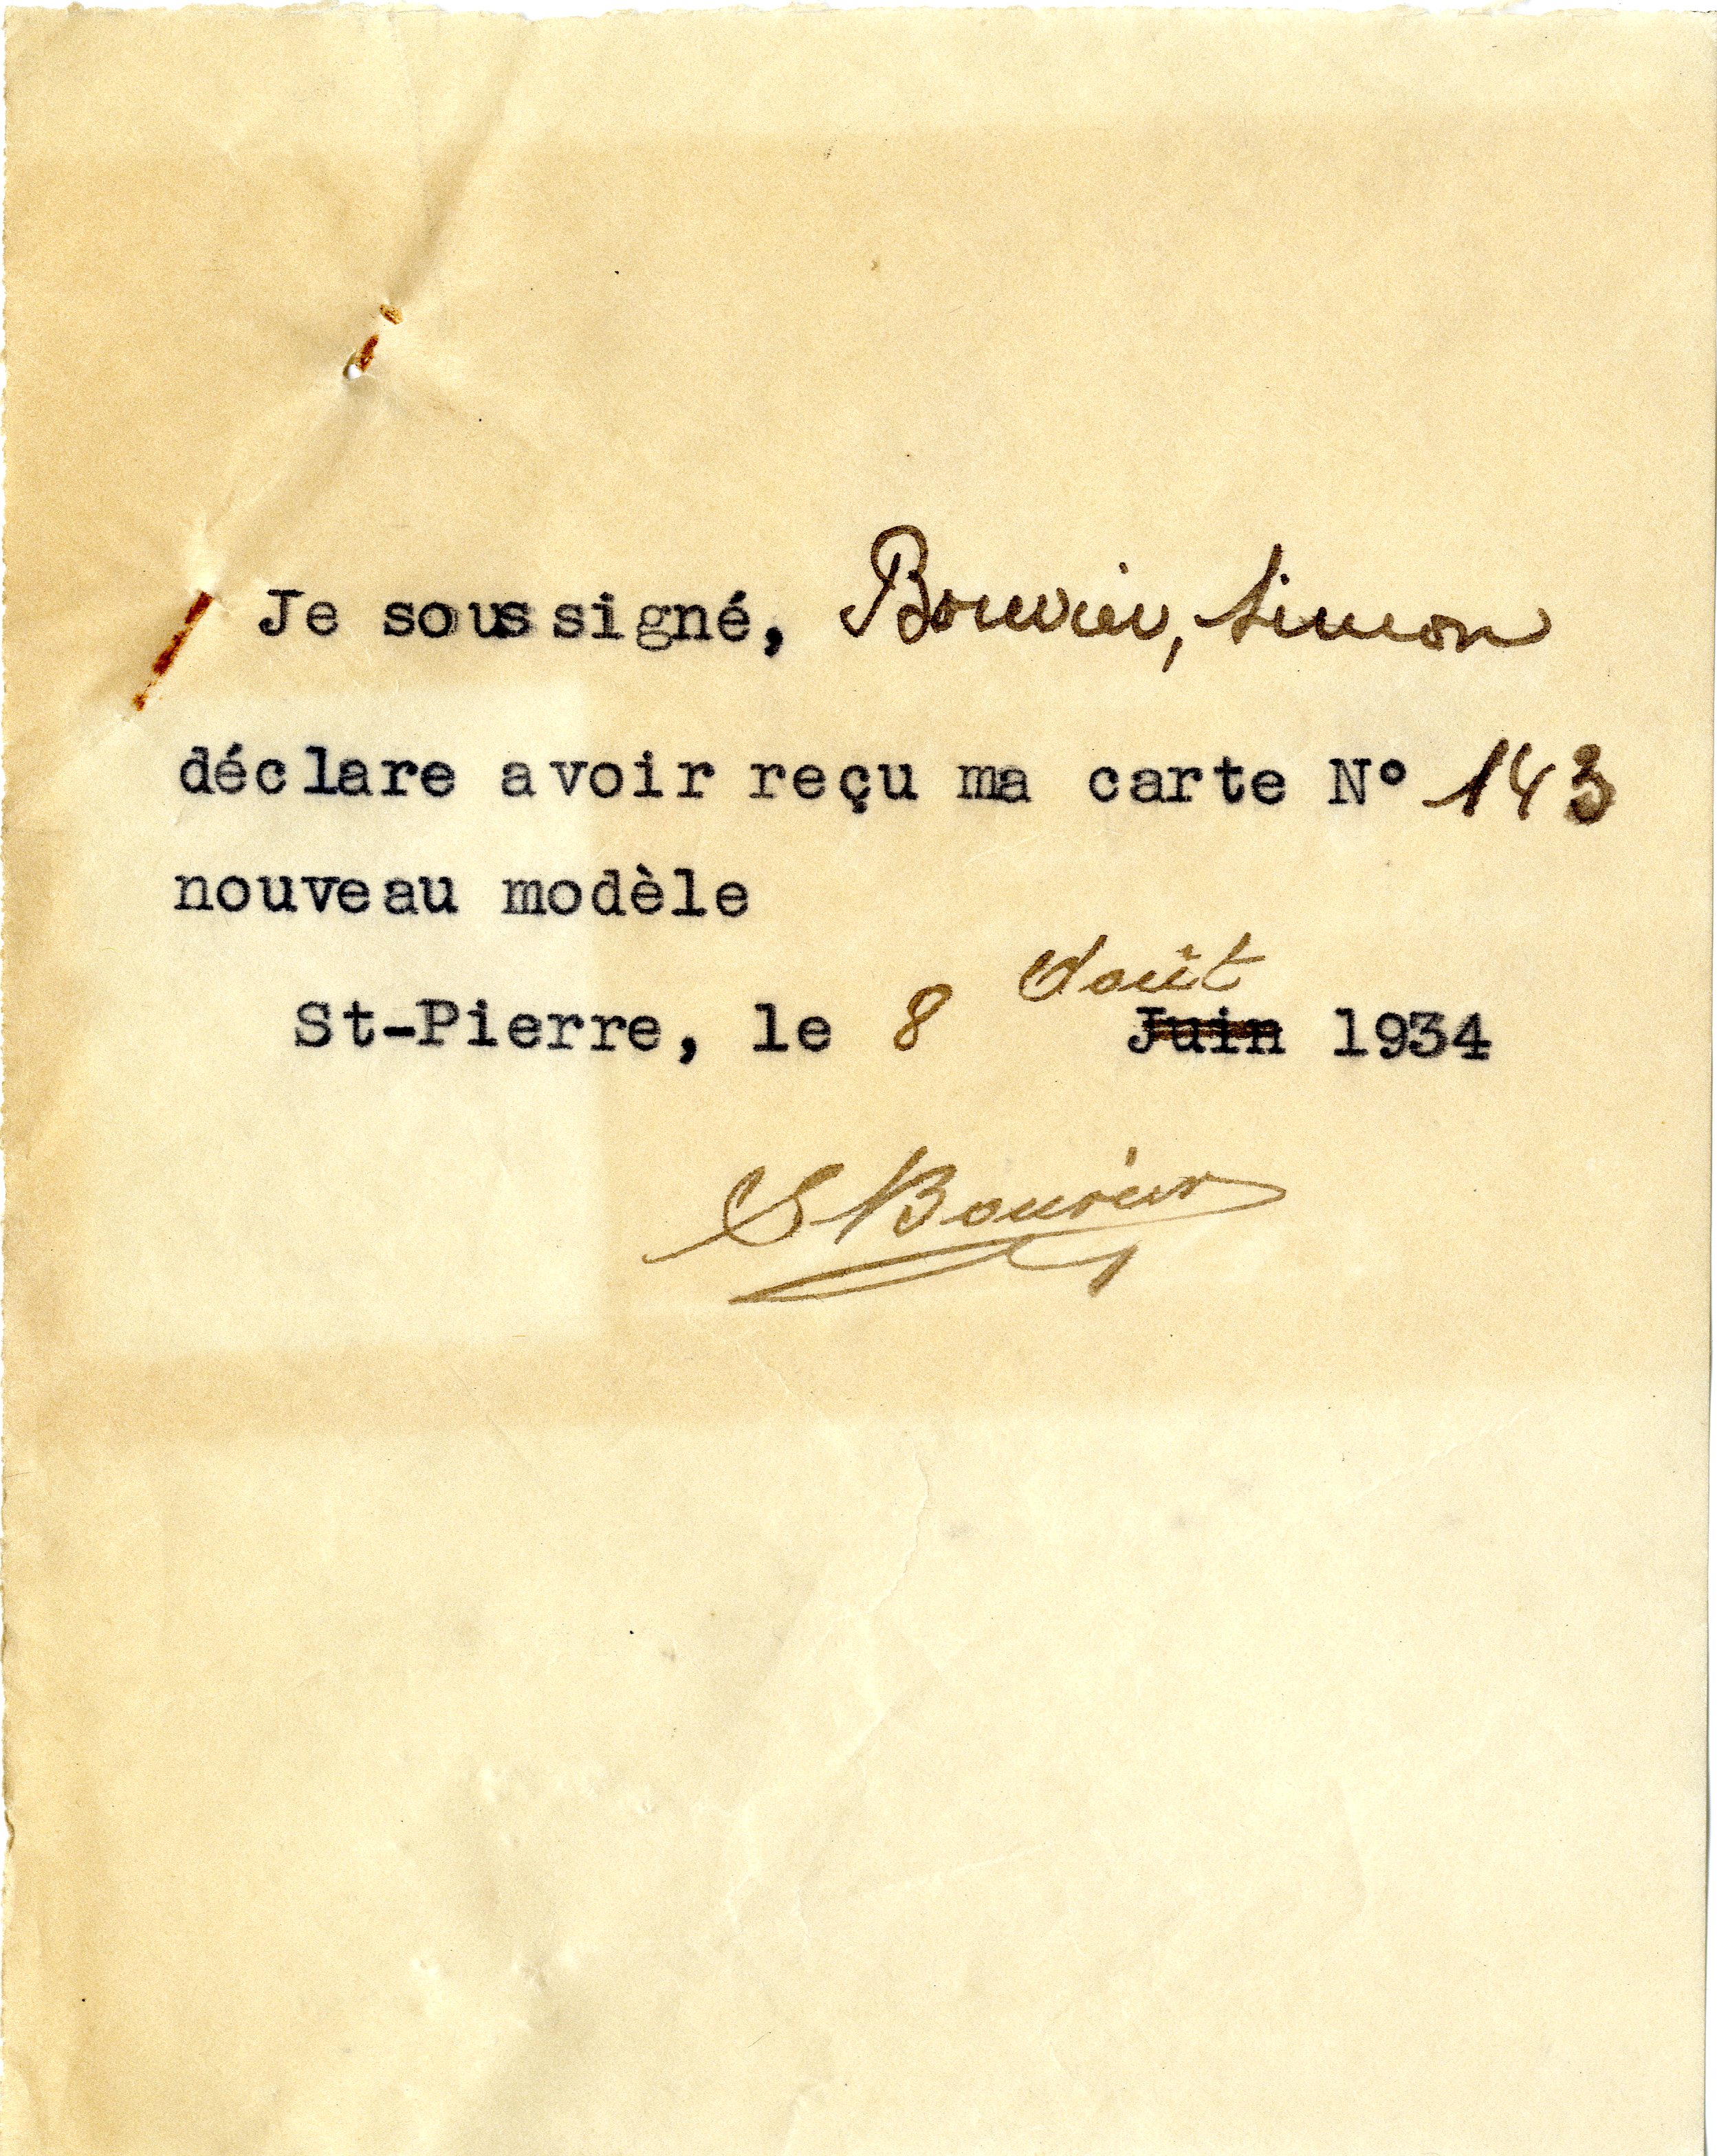 Je soussigné, Bouvier, Simon
déclare avoir reçu ma carte N° 143
nouveau modèle
Août
St-Pierre, le 8 Juin 1934
S Bouvier